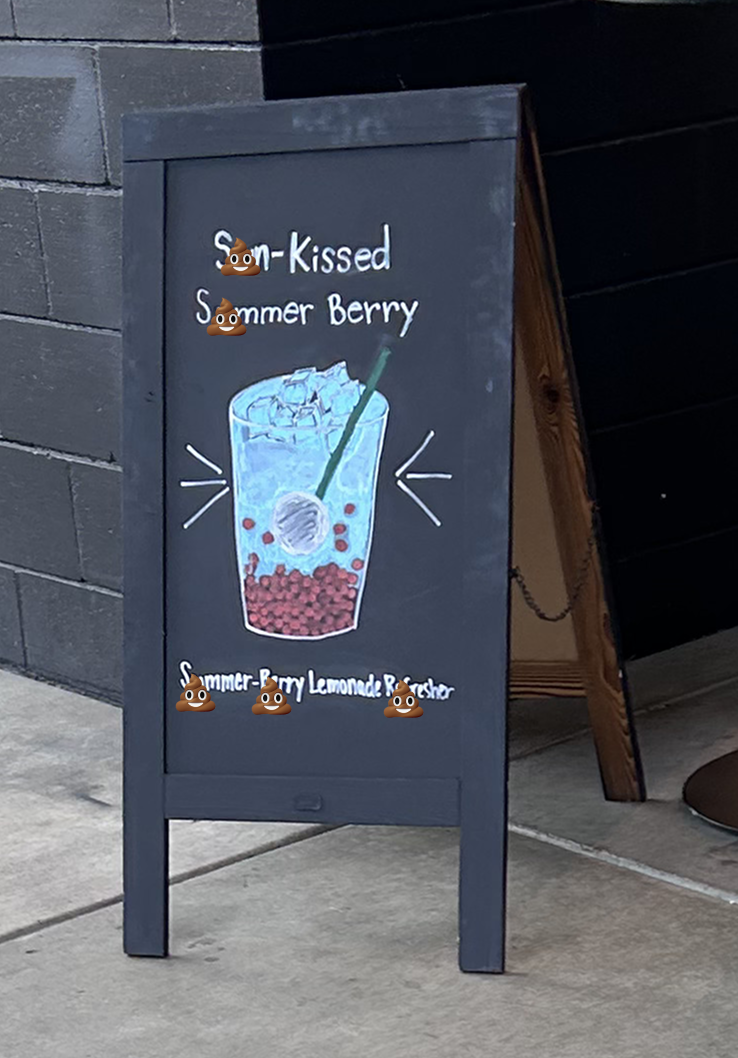 S💩n-Kissed
S💩mmer Berry
S💩mmer-B💩rry Lemonade R💩fresher